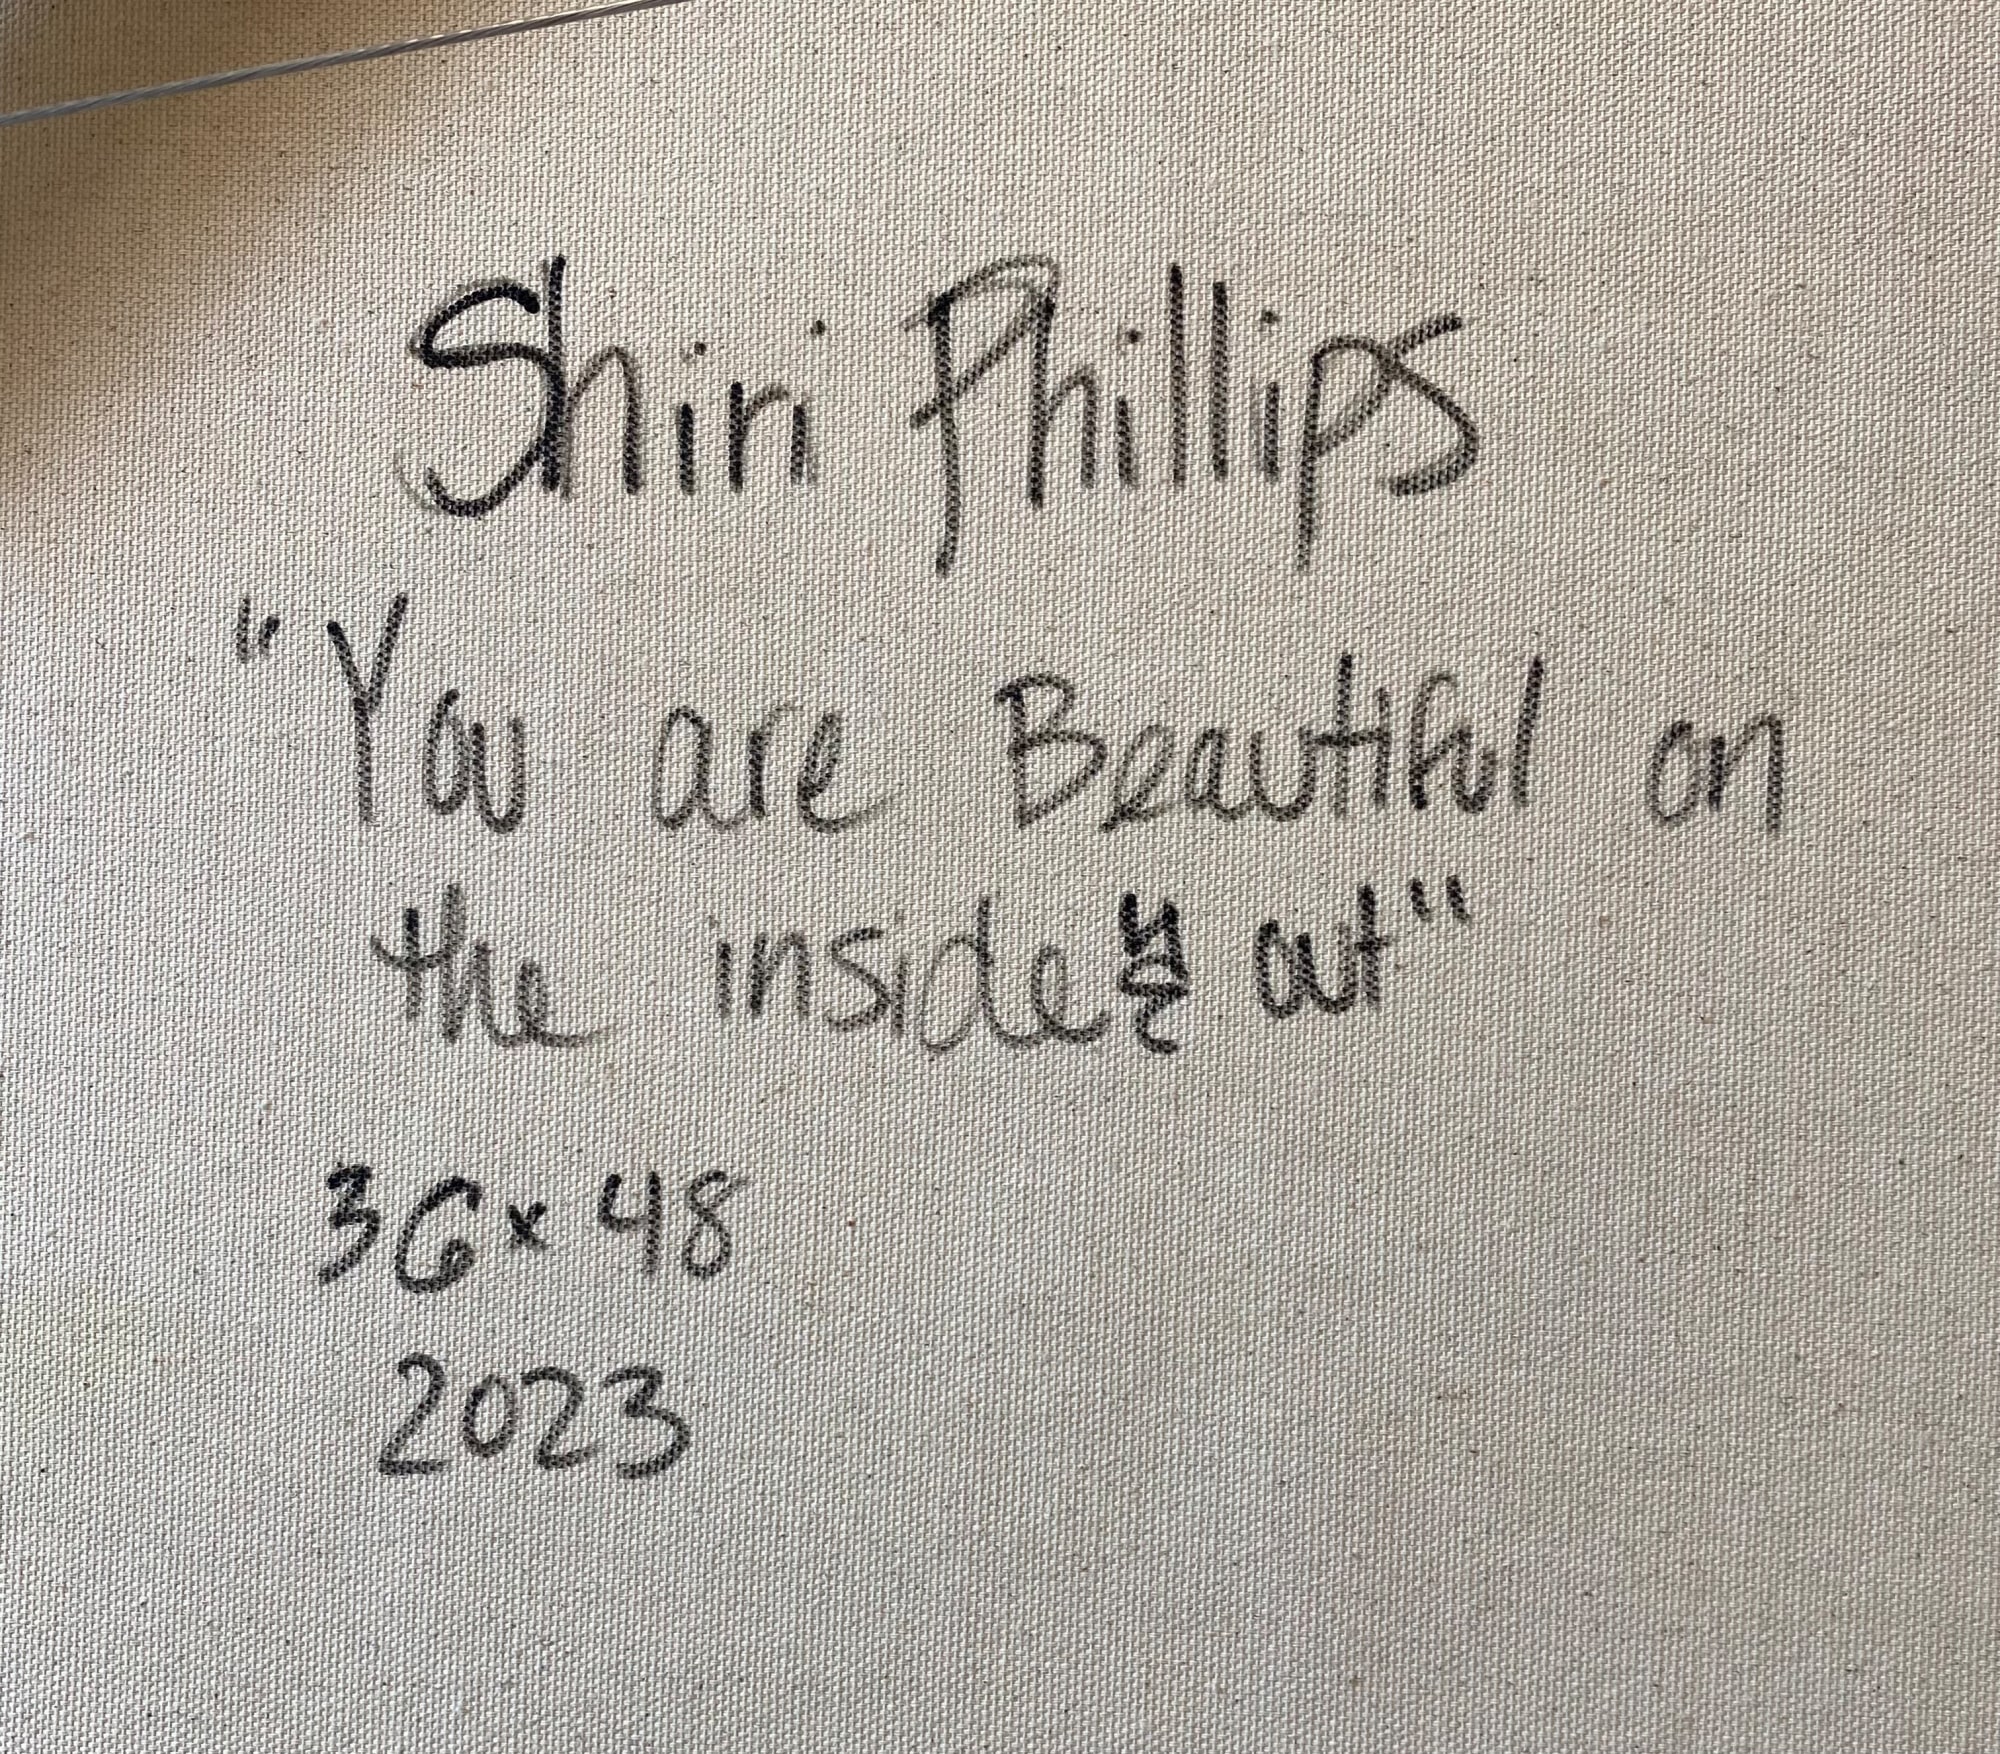 Shiri Phillips
"You are Beautiful on
the inside & out"
36x48
2023